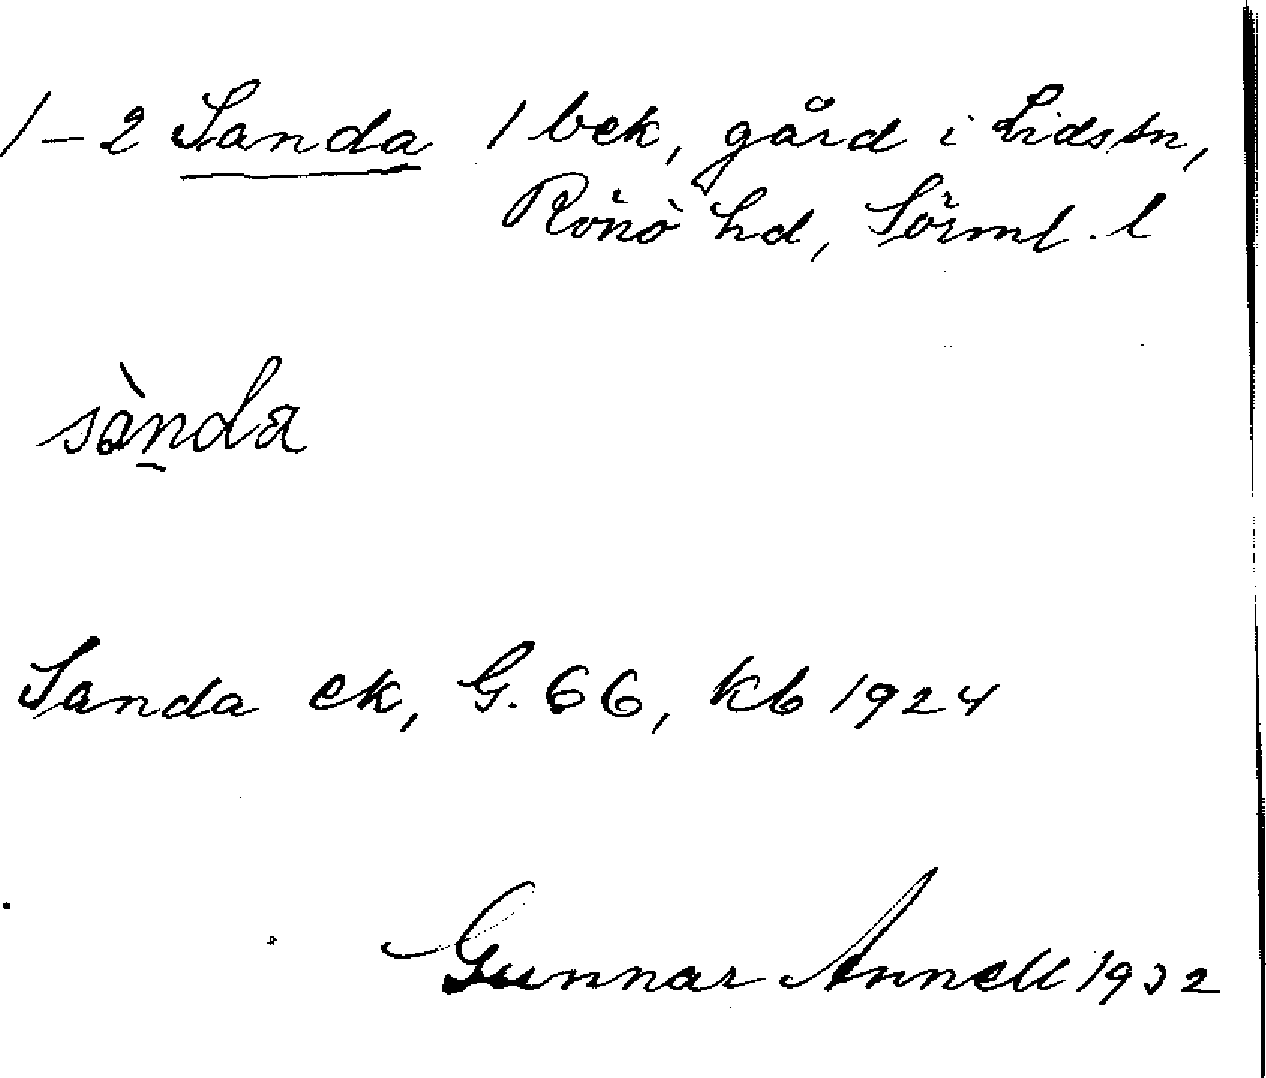 1-2 Sanda 1 bek, gård i Lids sn,
Rönö hd, Sörml. l
sànda
Sanda ek, G. 66, kb 1924
Gunnar Annell 1932